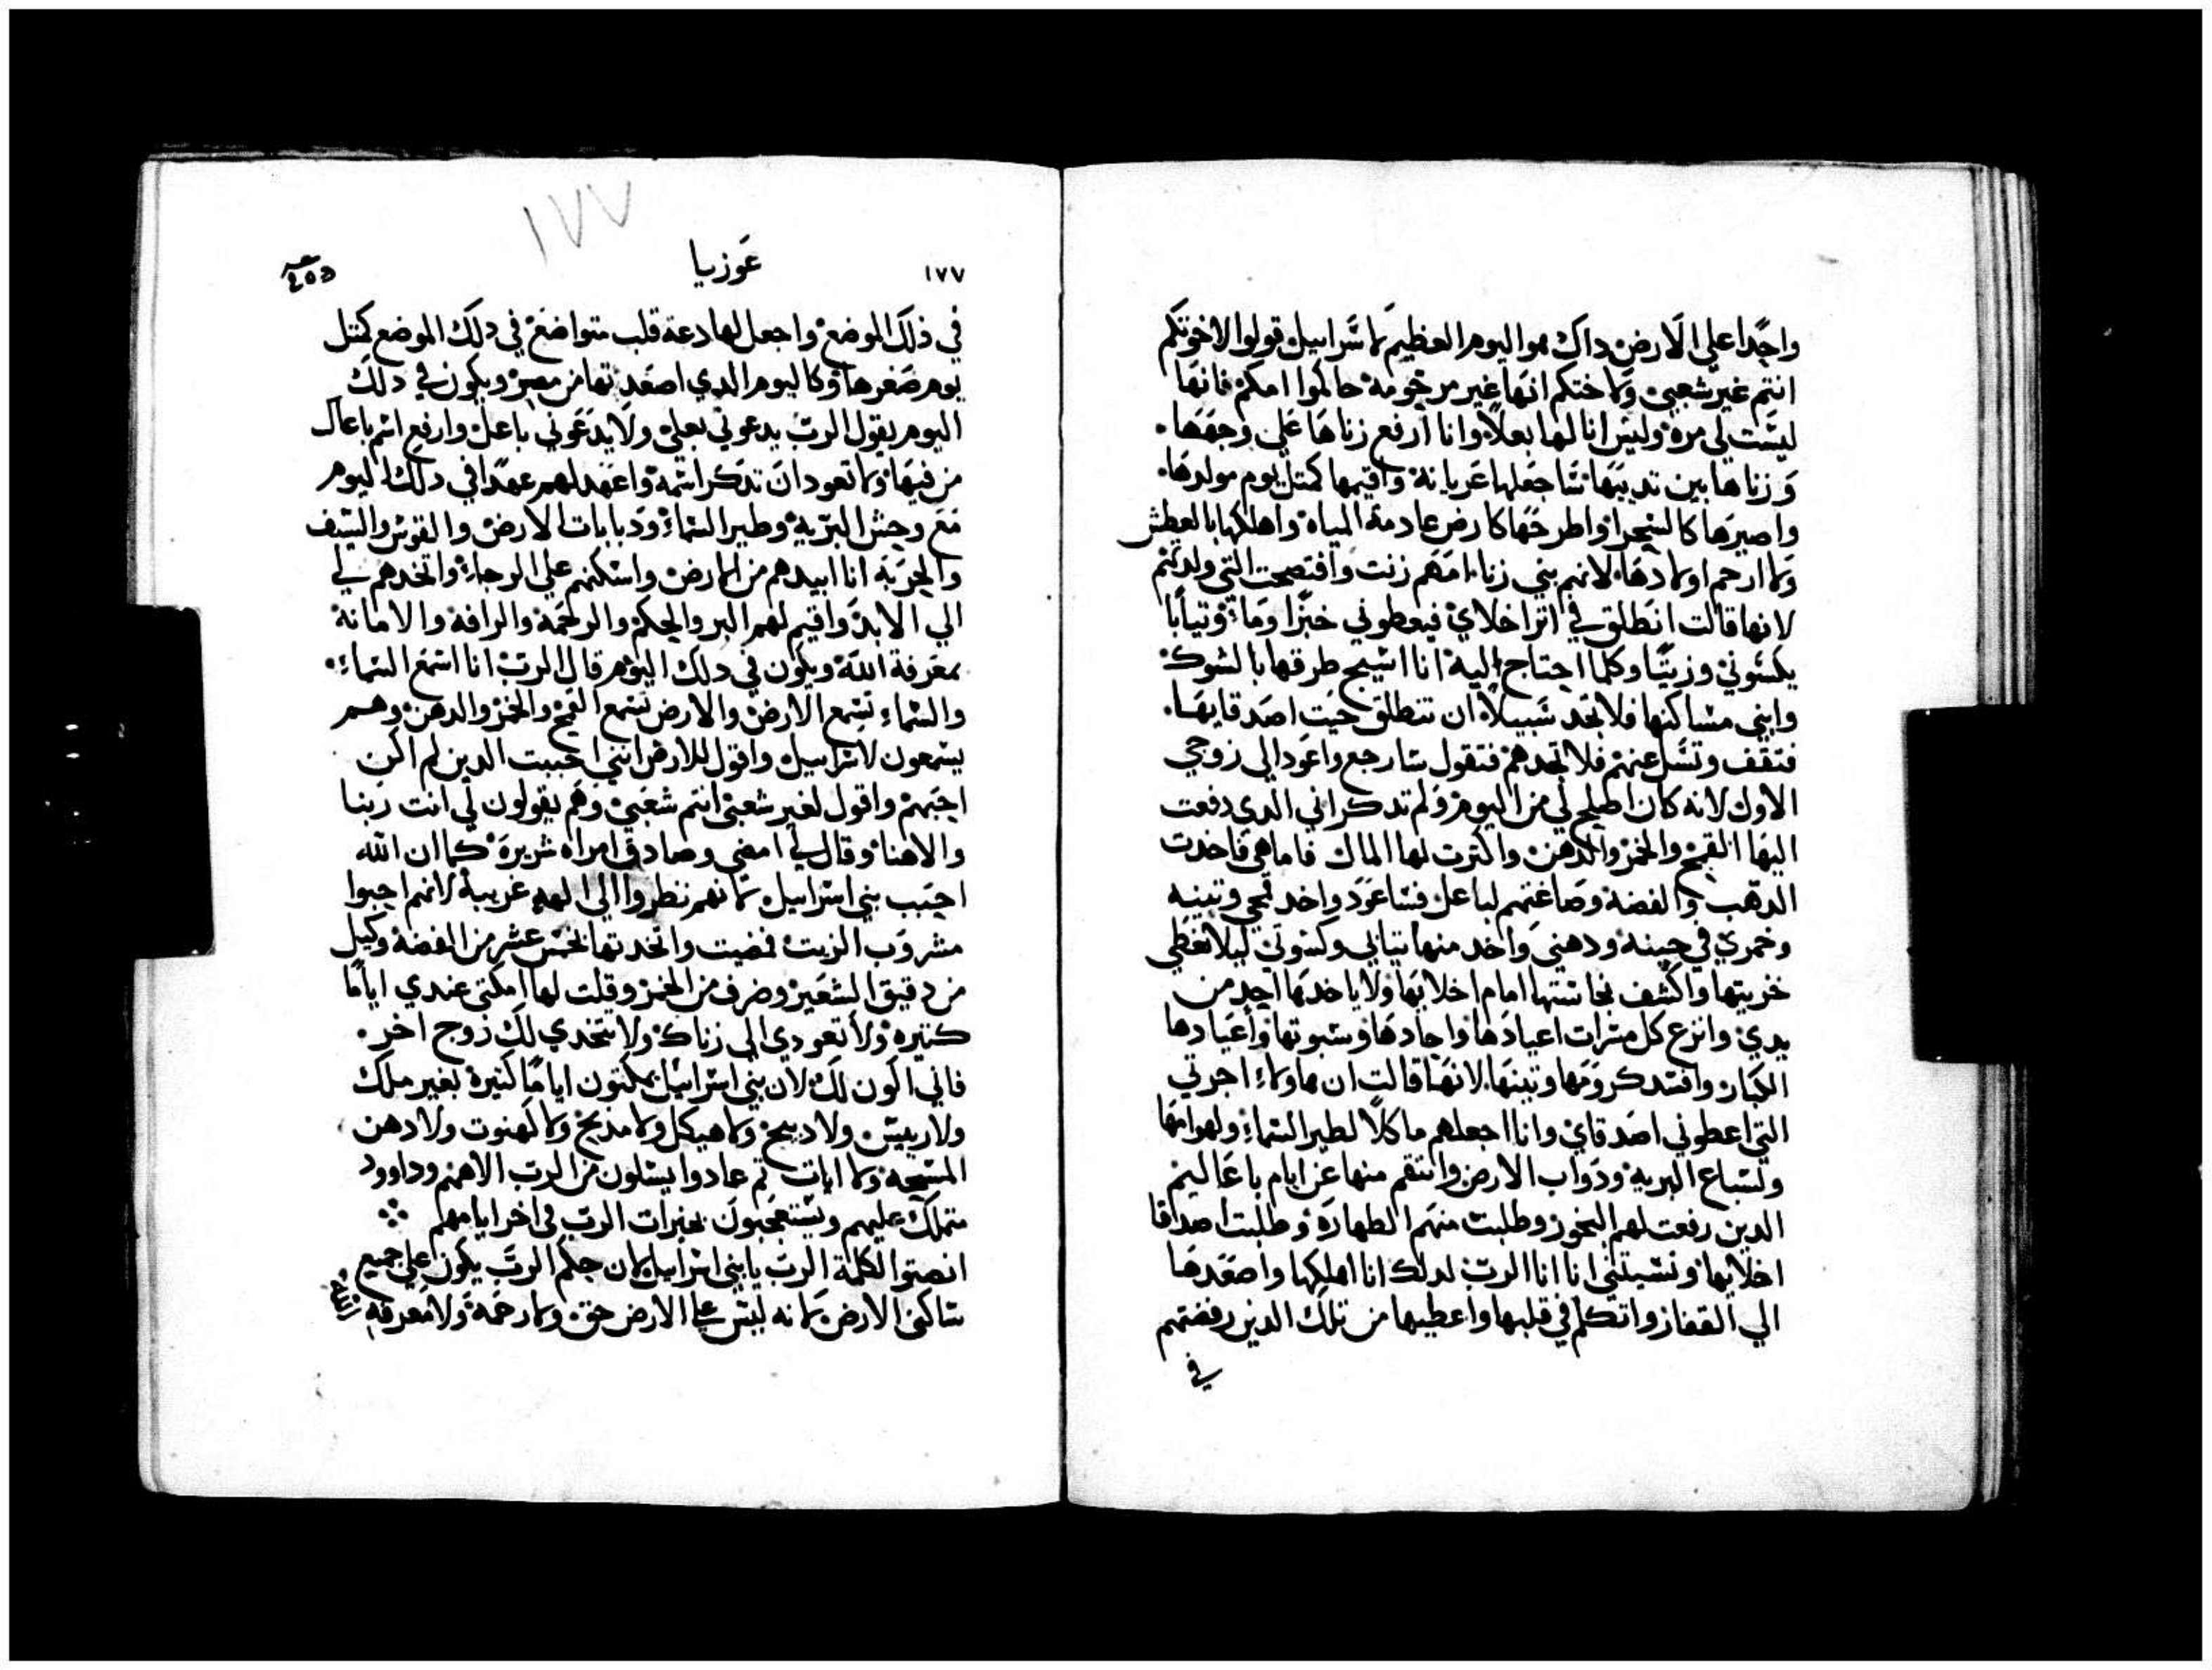 واحدا علي الارض داك هو اليوم العظيم لاسراييل قولوا لاخوتكم
انتم غير شعبي ولاختكم انها غير مرحومه حاكموا امكم فانها
ليست لي مره وليس انا لها بعلا وانا ارفع زناها علي وجهها
وزناها بين تدييها ساجعلها عريانة واقيمها كمتل يوم مولدها
واصيرها كالسحرا واطرحها كارض عادمة المياه واهلكها بالعطش
ولا ارحم اولادها لانهم بني زنا امهم زنت وافتضحت التي ولدتهم
لانها قالت انطلق في اترا خلاي فيعطوني خبزا وما وتيابا
يكسوني وزيتا وكلما احتاج اليه انا اسيج طرقها بالشوك
وابني مساكنها فلا تجد سبيلا ان تنطلق حيت اصدقايها
فتقف وتسل عنهم فلا تجدهم فتقول سارجع واعود الي زوجي
الاول لانه كان اصلح لي من اليوم ولم تدكر اني الدي دفعت
اليها القمح والخمر والدهن واكترت لها المال فاما هي فاخدت
الدهب والفضة وصاغتهم لباعل فساعود واخد قمحي وتينه
وخمري في حينه ودهني واخد منها تيابي وكسوتي ليلا تغطي
خزيتها واكشف نجاستها امام اخلايها ولا ياخدها احد من
يدي وانزع كل مسرات اعيادها واحادها وسبوتها واعيادها
الكبار وافسد كرومها وتينها لانها قالت ان هاولاء اجرتي
التي اعطوني اصدقاي وانا اجعلهم ماكلا لطير السماء ولهوامها
ولسباع البرية ودواب الارض وانتقم منها عن ايام باعاليم
الدين رفعت لهم البخور وطلبت منهم الطهارة وطلبت اصداقا
اخلايها ونسيتني انا انا الرب لدلك انا اهلكها واصعدها
الي القفاز واتكلم في قلبها واعطيها من تلك الدين رفضتهم
في
١٧٧
١٧٧
عوزيا
في ذلك الموضع واجعل لها دعة قلب متواضع في دلك الموضع كمتل
يوم صغرها وكاليوم الدي اصعدتها من مصر ويكون في دلك
اليوم يقول الرب يدعوني بعلي ولا يدعوني باعل وارفع اسم باعال
من فيها ولا تعود ان تدكر اسمه واعهد لهم عهدا في دلك اليوم
مع وحش البرية وطير السماء ودبابات الارض والقوس والسيف
والحربة انا ابيدهم من الارض واسكنهم علي الرجاء واتخدهم لي
الي الابد واقيم لهم البر والحكم والرحمة والرافة والامانة
بمعرفة الله ويكون في دلك اليوم قال الرب انا اسمع السماء
والسماء تسمع الارض والارض تسمع القمح والخمر والدهن وهم
يسمعون لاسراييل واقول للارض انني احببت الدين لم اكن
احبهم واقول لغير شعبي انتم شعبي وهم يقولون لي انت ربنا
والاهنا وقال لي امضي وصادق امراه شريرة كما ان الله
احبب بني اسراييل لانهم نظروا الي الهه غريبة لانهم احبوا
مشروب الزبيب فمضيت واتخدتها بخمس عشر من الفضة وكيل
من دقيق الشعير وضرف من الخمر وقلت لها امكتي عندي اياما
كتيره ولا تعودي الي زناك ولا تتخدي لك زوج اخر
فاني اكون لك لان بني اسراييل يمكتون اياما كتيرة بغير ملك
ولا رييس ولا دبيح ولا هيكل ولا مدبح ولا كهنوت ولا دهن
المسحه ولا ايات تم عادوا يسلون من الرب الاههم وداوود
متملك عليهم ويستعجبون بخيرات الرب في اخر ايامهم
انصتوا لكلمة الرب يا بني اسراييل لان حكم الرب يكون علي جميع
ساكني الارض لانه ليس علي الارض حق ولا رحمة ولا معرفة